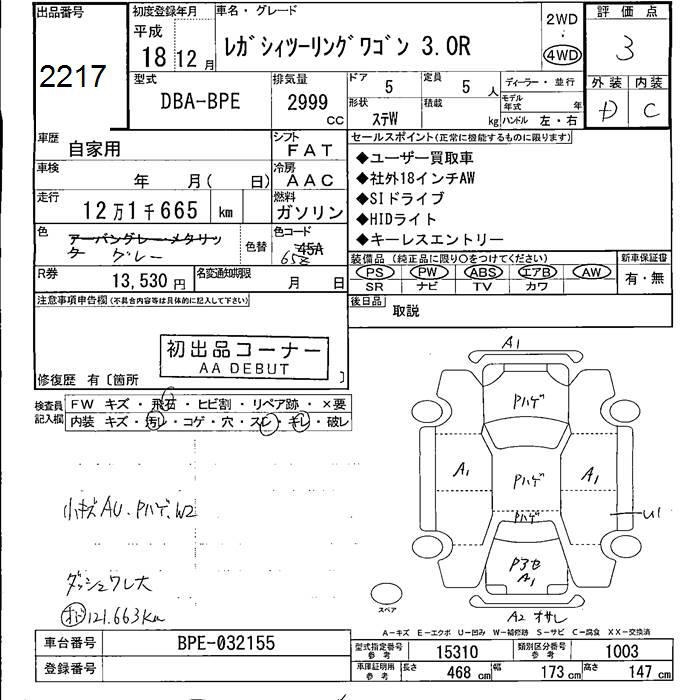 出品番号
2217
初度登録年月
平成
18 12 月
車名・グレード
レガシィツーリングワゴン 3.0R
2WD
・
4WD
評価点
3
外装 内装
D C
型式
DBA-BPE
排気量
2999
CC
ドア
5
定員
5 人
形状
ステW
積載
kg
ディーラー・並行
モデル年式 年
ハンドル 左・右
車歴
自家用
シフト
FAT
車検
年 月( 日)
冷房
AAC
走行
12万1千665 km
燃料
ガソリン
色
アーバングレーメタリック
グレー
色替
色コード
45A
65Z
R券
13,530 円
名変通知期限
月 日
セールスポイント(正常に機能するものに限ります)
◆ユーザー買取車
◆社外18インチAW
◆SIドライブ
◆HIDライト
◆キーレスエントリー
装備品(純正品に限り○をつけてください)
PS PW ABS エアB AW
SR ナビ TV カワ
新車保証書
有・無
後日品
取説
注意事項申告欄(不具合内容等は具体的に記入して下さい)
初出品コーナー
AA DEBUT
修復歴 有〔箇所 〕
検査員記入欄
FW キズ・飛石・ヒビ割・リペア跡・×要
内装 キズ・汚レ・コゲ・穴・スレ・キレ・破レ
小キズAU、Pハゲ、W2
ダッシュワレ大
オド 121.663km
A1
Pハゲ
A1
Pハゲ
A1
Pハゲ
U1
P3セ
A1
A2 オサレ
スペア
A－キズ E－エクボ U－凹み W－補修跡 S－サビ C－腐食 XX－交換済
車台番号
BPE-032155
登録番号
型式指定番号
参考
15310
類別区分番号
参考
1003
車庫証明用
参考
長さ 468 cm
幅 173 cm
高さ 147 cm